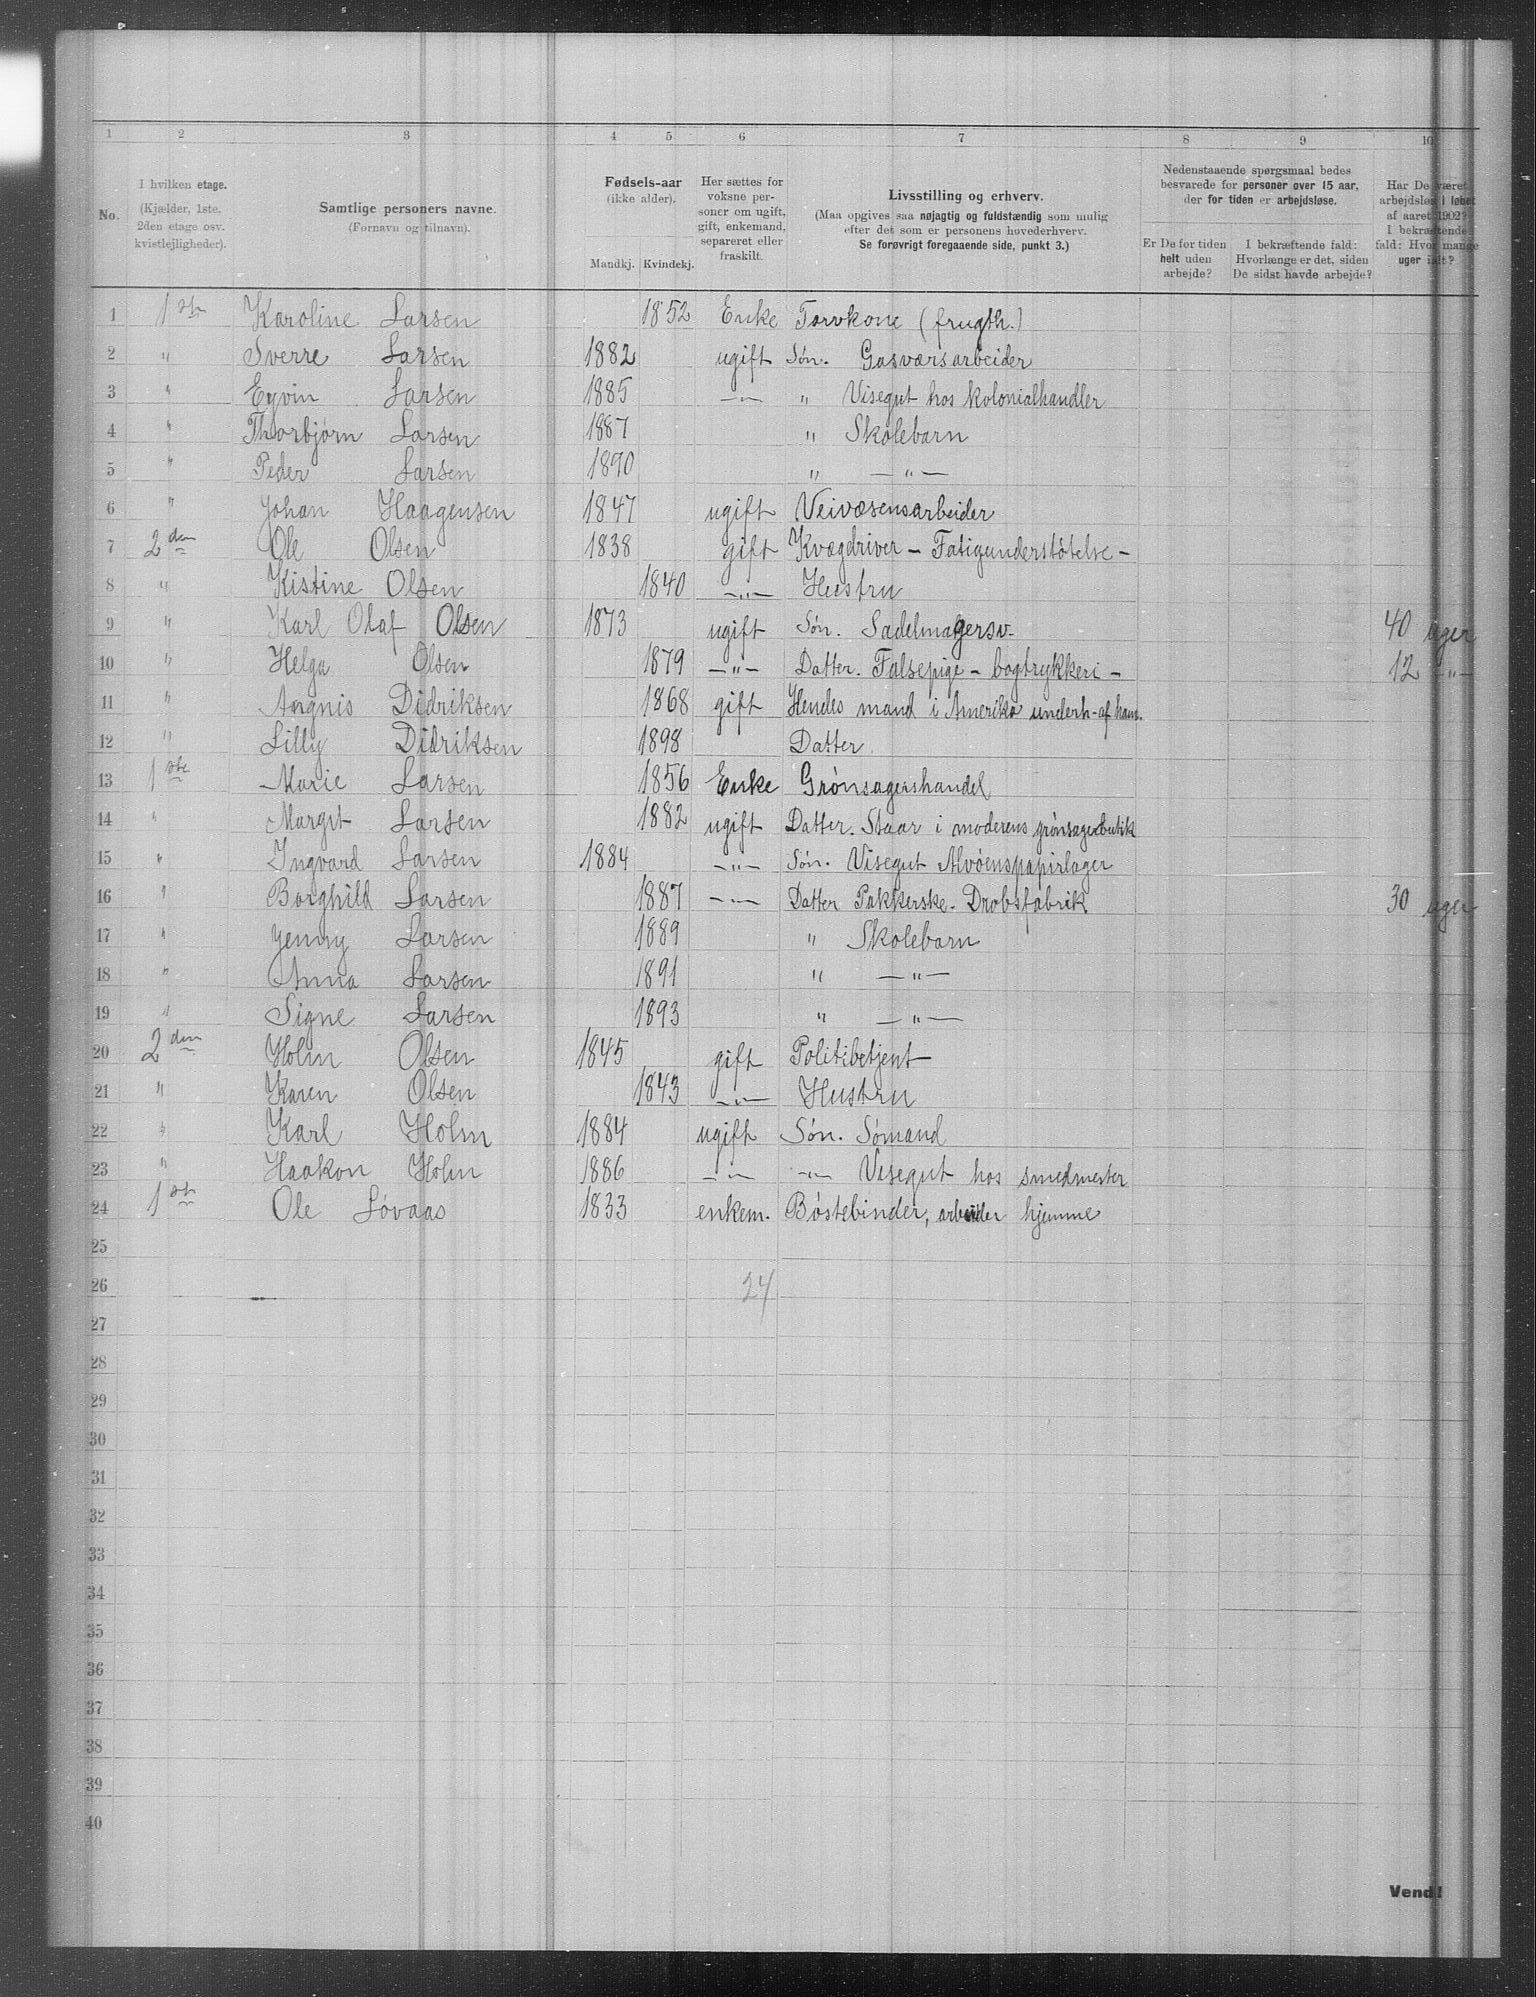 1 2 3 4 5 6 7 8 9 10
No.
I hvilken etage.
(Kjælder, 1ste.
2den etage osv.
kvistlejligheder).
Samtlige personers navne.
(Fornavn og tilnavn).
Fødsels-aar
(ikke alder).
Mandkj. Kvindekj.
Her sættes for
voksne per-
soner om ugift,
gift, enkemand,
separeret eller
fraskilt.
Livsstilling og erhverv.
(Maa opgives saa nøjagtig og fuldstændig som mulig
efter det som er personens hovederhverv.
Se forøvrigt foregaaende side, punkt 3.)
Nedenstaaende spørgsmaal bedes
besvarede for personer over 15 aar,
der for tiden er arbejdsløse.
Er De for tiden
helt uden
arbejde?
I bekræftende fald:
Hvorlænge er det, siden
De sidst havde arbejde?
Har De været
arbejdsløs i løbet
af aaret 1902?
I bekræftende
fald: Hvor mange
uger ialt?
1 1ste Karoline Larsen 1852 Enke Torvkone (frugth.)
2 " Sverre Larsen 1882 ugift Søn. Gasværsarbeider
3 " Eyvin Larsen 1885 —"— " Visegut hos kolonialhandler
4 " Thorbjørn Larsen 1887 " Skolebarn
5 " Peder Larsen 1890 " —"—
6 " Johan Haagensen 1847 ugift Veivæsensarbeider
7 2den Ole Olsen 1838 gift Kvægdriver - Fatigunderstøtelse -
8 " Kistine Olsen 1840 —"— Hustru
9 " Karl Olaf Olsen 1873 ugift Søn. Sadelmagersv. 40 uger
10 " Helga Olsen 1879 —"— Datter. Falsepige - bogtrykkeri - 12 —"—
11 " Angnis Didriksen 1868 gift Hendes mand i Amerika underh. af ham.
12 " Lilly Didriksen 1898 Datter
13 1ste Marie Larsen 1856 Enke Grønsagershandel
14 " Margit Larsen 1882 ugift Datter. Staar i moderens grønsagerbutik
15 " Ingvard Larsen 1884 —"— Søn. Visegut Alvøenspapirlager
16 " Borghild Larsen 1887 —"— Datter Pakkerske. Drobsfabrik 30 uger
17 " Jenny Larsen 1889 " Skolebarn
18 " Anna Larsen 1891 " —"—
19 " Signe Larsen 1893 " —"—
20 2den Holm Olsen 1845 gift Politibetjent
21 " Karen Olsen 1843 —"— Hustru
22 " Karl Holm 1884 ugift Søn. Sømand
23 " Haakon Holm 1886 —"— —"— Visegut hos smedmester
24 1ste Ole Løvaas 1833 enkem. Bøstebinder, arbeider hjemme
25
26 24
27
28
29
30
31
32
33
34
35
36
37
38
39
40
Vend!